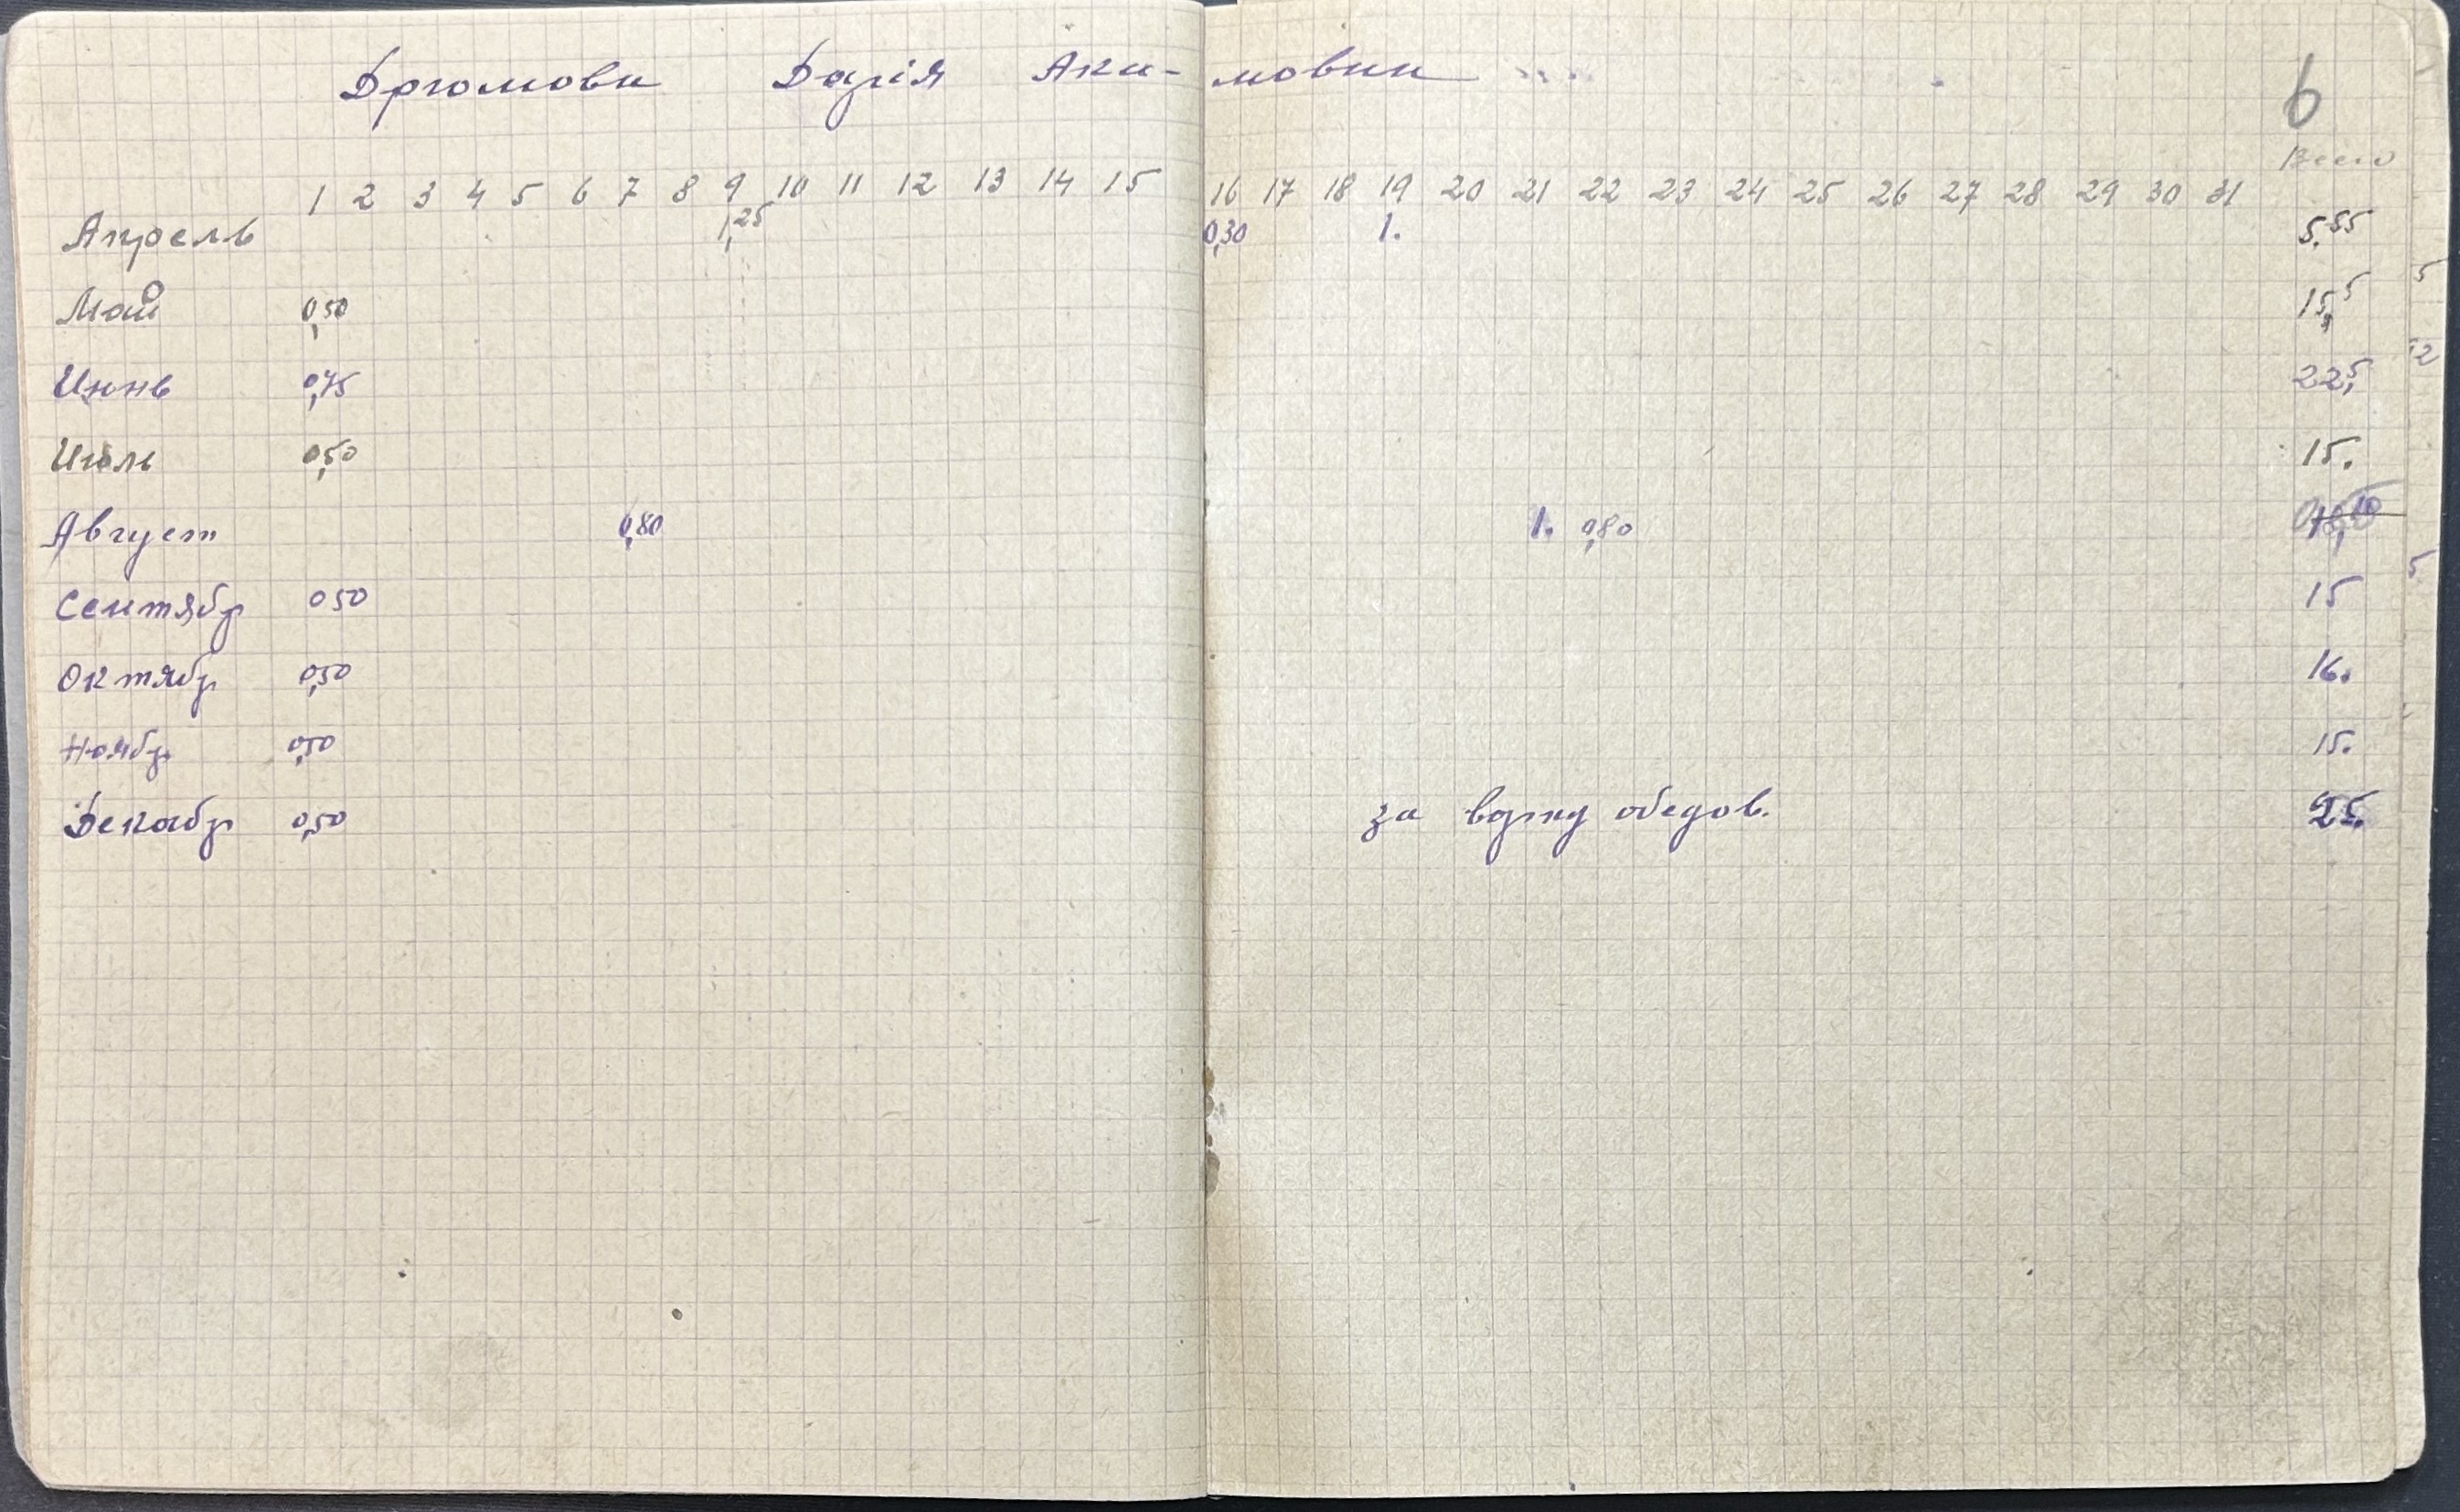 Дрюмова Дарія Аки- мовна 6
1 2 3 4 5 6 7 8 9 10 11 12 13 14 15 16 17 18 19 20 21 22 23 24 25 26 27 28 29 30 31 Всего
Апрель 1,25 0,30 1. 5.55
Май 0,50 15,5
Июнь 0,75 22,5
Июль 0,50 15.
Август 0,80 1. 0,80
Сентябр 0 50 15
Октябр 0,50 16.
Ноябр 0,50 15.
Декабр 0,50 за варку обедов. 25.